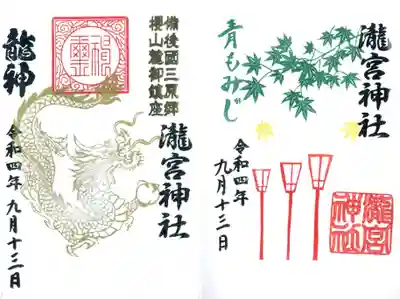 備後國三原郷
櫻山麓御鎮座
瀧宮神社
龍神
令和四年 九月十三日
瀧宮神社
青もみじ
令和四年
九月十三日
瀧宮
神社